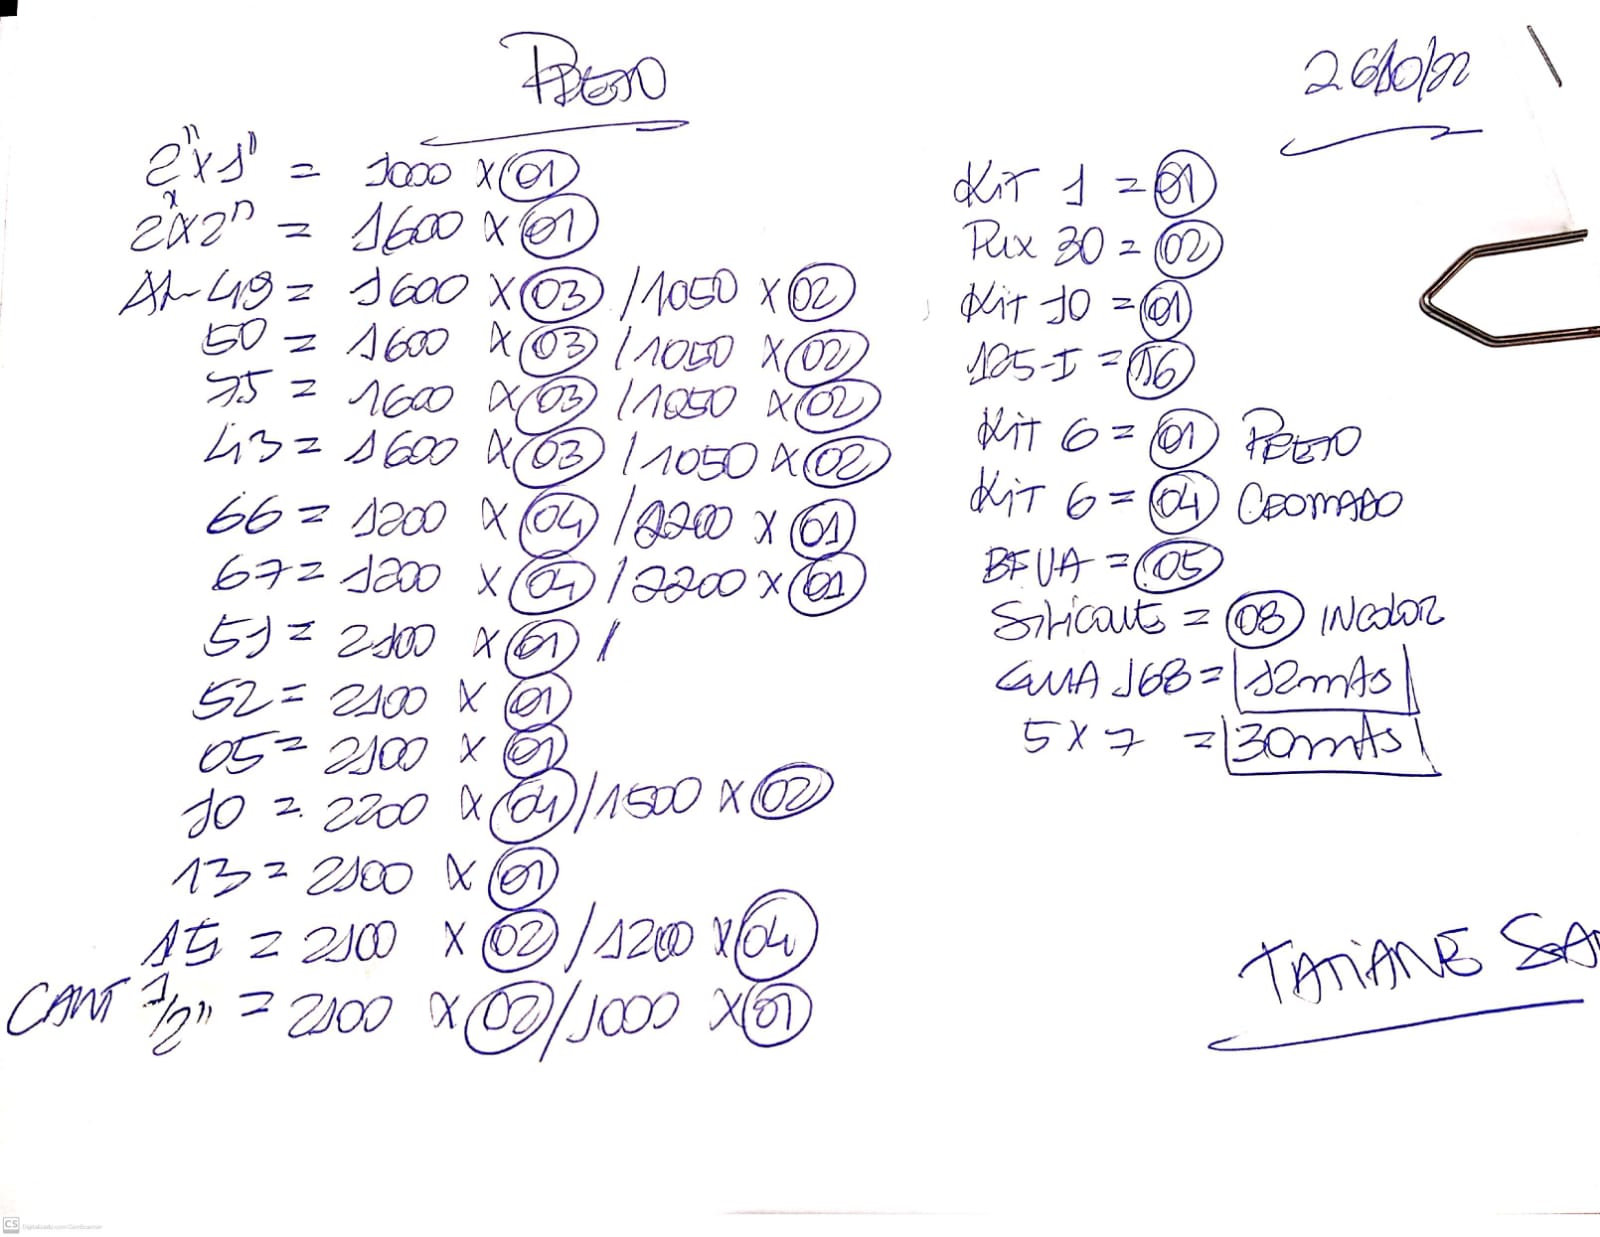 PRETO
26/10/22
2"x1" = 1000 x 01
2"x2" = 1600 x 01
AL-49 = 1600 x 03 / 1050 x 02
50 = 1600 x 03 / 1050 x 02
75 = 1600 x 03 / 1050 x 02
43 = 1600 x 03 / 1050 x 02
66 = 1200 x 04 / 2200 x 01
67 = 1200 x 04 / 2200 x 01
51 = 2100 x 01 /
52 = 2100 x 01
05 = 2100 x 01
10 = 2200 x 04 / 1500 x 02
13 = 2100 x 01
15 = 2100 x 02 / 1200 x 04
CANT 1/2" = 2100 x 02 / 1000 x 01
Kit 1 = 01
Pux 30 = 02
Kit 10 = 01
125-I = 16
Kit 6 = 01 PRETO
Kit 6 = 04 CROMADO
BFVA = 05
= 08 INCOLOR
GUIA 168 = 12mts
5 x 7 = 30mts
TATIANE SA
CS Digitalizado com CamScanner